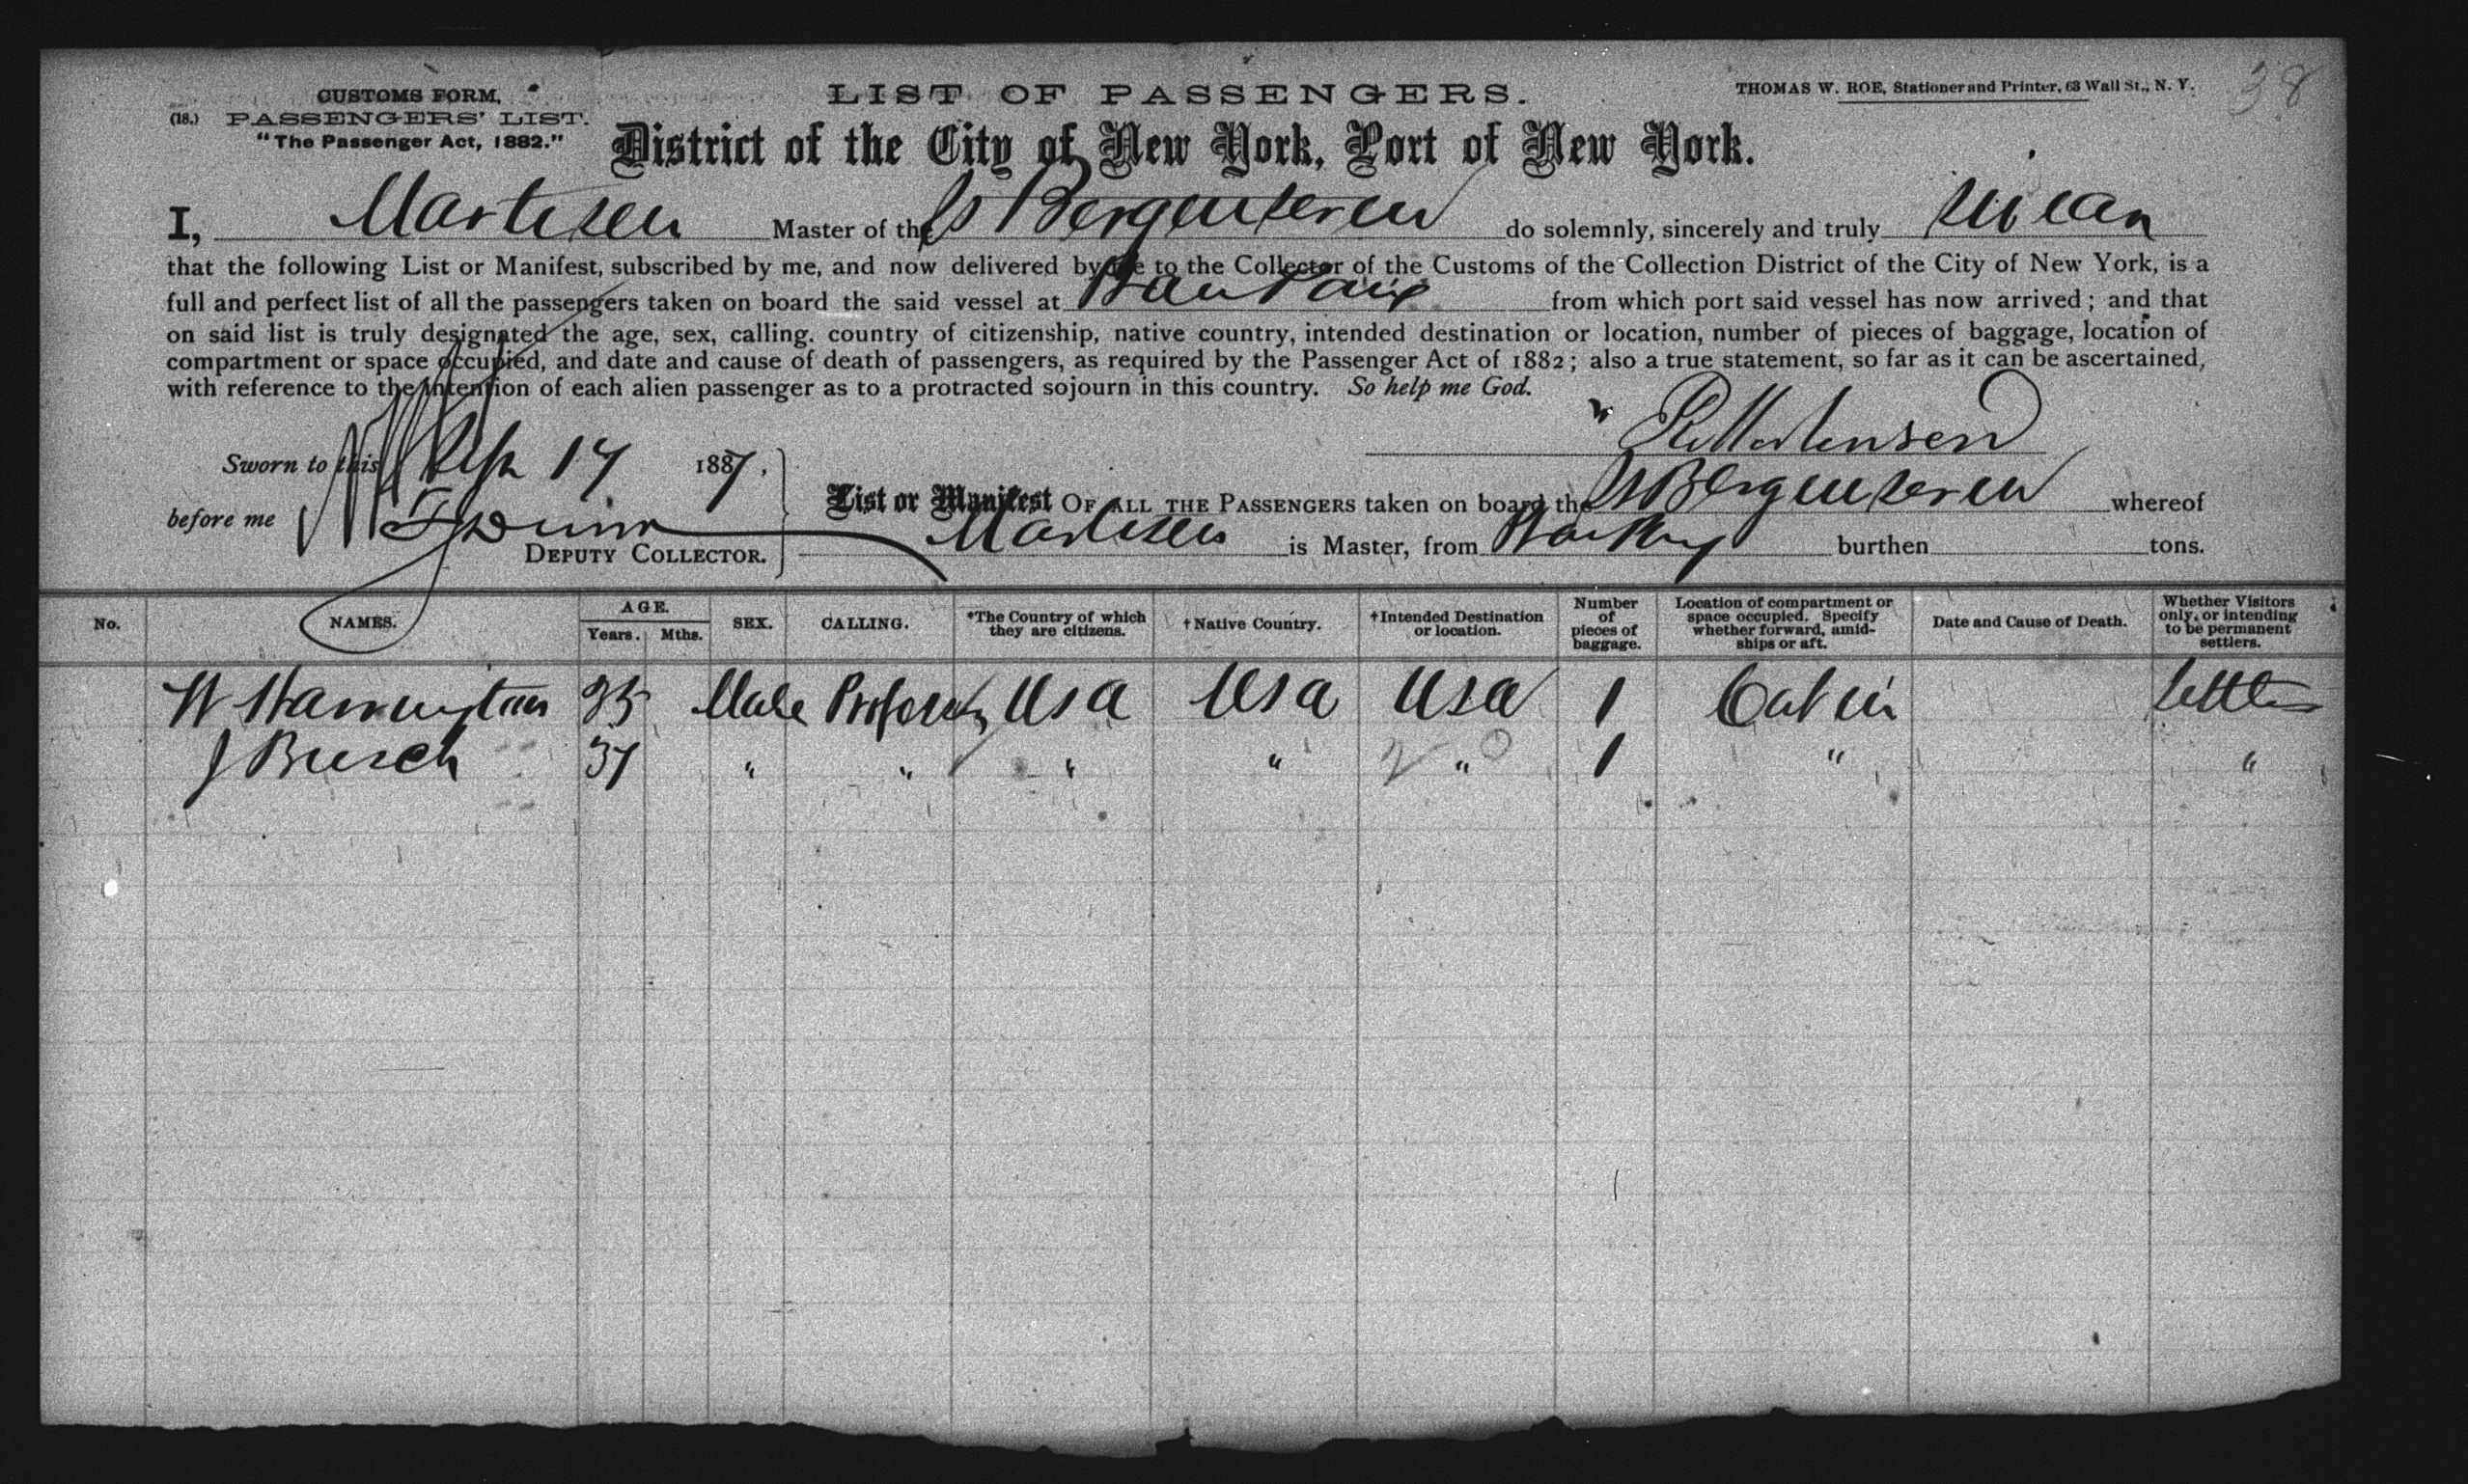 CUSTOMS FORM,
(18.) PASSENGERS' LIST.
"The Passenger Act, 1882."
LIST OF PASSENGERS.
THOMAS W. ROE, Stationer and Printer, 63 Wall St., N. Y.
38
District of the City of New York, Port of New York.
I, Martesen Master of the SS Bergenseren do solemnly, sincerely and truly swear
that the following List or Manifest, subscribed by me, and now delivered by me to the Collector of the Customs of the Collection District of the City of New York, is a
full and perfect list of all the passengers taken on board the said vessel at from which port said vessel has now arrived; and that
on said list is truly designated the age, sex, calling. country of citizenship, native country, intended destination or location, number of pieces of baggage, location of
compartment or space occupied, and date and cause of death of passengers, as required by the Passenger Act of 1882; also a true statement, so far as it can be ascertained,
with reference to the intention of each alien passenger as to a protracted sojourn in this country. So help me God.
Martensen
Sworn to this Sep 17 1887.
before me
DEPUTY COLLECTOR.
List or Manifest OF ALL THE PASSENGERS taken on board the SS Bergenseren whereof
Martesen is Master, from burthen tons.
No. NAMES. AGE. Years. Mths. SEX. CALLING. *The Country of which they are citizens. †Native Country. †Intended Destination or location. Number of pieces of baggage. Location of compartment or space occupied. Specify whether forward, amidships or aft. Date and Cause of Death. Whether Visitors only, or intending to be permanent settlers.
W Harrington 35 Male Usa Usa Usa 1 Cabin Settler
J Busch 37 " " " " 2 " 0 1 " "